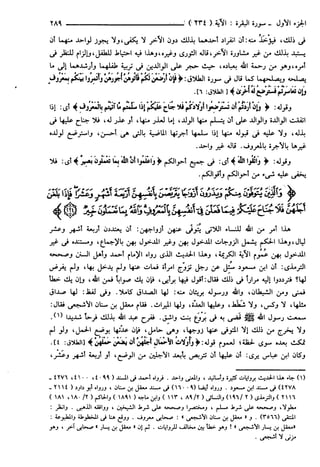 الجزء الأول - سورة البقرة : الآية ( ٢٣٤ ) ٢٨٩
في ذلك، فيؤخذ منه: أن انفراد أحدهما بذلك دون الآخر لا يكفي، ولا يجوز لواحد منهما أن
يستبد بذلك من غير مشاورة الآخر، قاله الثوري وغيره، وهذا فيه احتياط للطفل، وإلزام للنظر في
أمره، وهو من رحمة الله بعباده، حيث حجر على الوالدين في تربية طفلهما وأرشدهما إلى ما
يصلحه ويصلحهما كما قال في سورة الطلاق: ﴿فَإِنْ أَرْضَعْنَ لَكُمْ فَآتُوهُنَّ أُجُورَهُنَّ وَأْتَمِرُوا بَيْنَكُم بِمَعْرُوفٍ
وَإِن تَعَاسَرْتُمْ فَسَتُرْضِعُ لَهُ أُخْرَى﴾ [الطلاق: ٦].
وقوله: ﴿وَإِنْ أَرَدتُّمْ أَن تَسْتَرْضِعُوا أَوْلَادَكُمْ فَلَا جُنَاحَ عَلَيْكُمْ إِذَا سَلَّمْتُم مَّا آتَيْتُم بِالْمَعْرُوفِ﴾ أي: إذا
اتفقت الوالدة والوالد على أن يتسلم منها الولد، إما لعذر منها، أو عذر له، فلا جناح عليها في
بذله، ولا عليه في قبوله منها إذا سلمها أجرتها الماضية بالتي هي أحسن، واسترضع لولده
غيرها بالأجرة بالمعروف. قاله غير واحد.
وقوله: ﴿وَاتَّقُوا اللَّهَ﴾ أي: في جميع أحوالكم ﴿وَاعْلَمُوا أَنَّ اللَّهَ بِمَا تَعْمَلُونَ بَصِيرٌ﴾ أي: فلا
يخفى عليه شيء من أحوالكم وأقوالكم.
﴿وَالَّذِينَ يُتَوَفَّوْنَ مِنكُمْ وَيَذَرُونَ أَزْوَاجًا يَتَرَبَّصْنَ بِأَنفُسِهِنَّ أَرْبَعَةَ أَشْهُرٍ وَعَشْرًا فَإِذَا بَلَغْنَ
أَجَلَهُنَّ فَلَا جُنَاحَ عَلَيْكُمْ فِيمَا فَعَلْنَ فِي أَنفُسِهِنَّ بِالْمَعْرُوفِ وَاللَّهُ بِمَا تَعْمَلُونَ خَبِيرٌ﴾
هذا أمر من الله للنساء اللاتي يُتوفى عنهن أزواجهن: أن يعتددن أربعة أشهر وعشر
ليال، وهذا الحكم يشمل الزوجات المدخول بهن وغير المدخول بهن بالإجماع، ومستنده في غير
المدخول بها عموم الآية الكريمة، وهذا الحديث الذي رواه الإمام أحمد وأهل السنن وصححه
الترمذي: أن ابن مسعود سئل عن رجل تزوج امرأة فمات عنها ولم يدخل بها، ولم يفرض
لها؟ فترددوا إليه مراراً في ذلك فقال: أقول فيها برأيي، فإن يك صواباً فمن الله، وإن يك خطأ
فمني ومن الشيطان، والله ورسوله بريئان منه: لها الصداق كاملا. وفي لفظ: لها صداق
مثلها، لا وكس، ولا شطط، وعليها العدة، ولها الميراث. فقام معقل بن سنان الأشجعي فقال:
سمعت رسول الله ﷺ قضى به في بروع بنت واشق. ففرح عبد الله بذلك فرحاً شديدا (١).
ولا يخرج من ذلك إلا المتوفى عنها زوجها، وهي حامل، فإن عدتها بوضع الحمل، ولو لم
تمكث بعده سوى لحظة؛ لعموم قوله: ﴿وَأُولَاتُ الْأَحْمَالِ أَجَلُهُنَّ أَن يَضَعْنَ حَمْلَهُنَّ﴾ [الطلاق: ٤].
وكان ابن عباس يرى: أن عليها أن تتربص بأبعد الأجلين من الوضع، أو أربعة أشهر وعشر،
(١) جاء هذا الحديث بروايات كثيرة وأسانيد، والمعنى واحد. فرواه أحمد في المسند ( ٤٠٩٩ ، ٤١٠٠ ، ٤٢٧٦ -
٤٢٧٨ ) في مسند ابن مسعود . ورواه أيضا ( ١٦٠٠٩ ) في مسند معقل بن سنان . ورواه أبو داود ( ٢١١٤ -
٢١١٦ ) والترمذي ( ٢/ ١٩٦ ) والنسائي ( ٢/ ٨٩ ، ١١٣ ) وابن ماجه ( ١٨٩١ ) والحاكم ( ٢/ ١٨٠ ، ١٨١ )
مطولا، وصححه على شرط مسلم ، ومختصرا وصححه على شرط الشيخين ، ووافقه الذهبي . وانظر :
المنتقى ( ٣٥٦٦ ) . و « معقل بن سنان الأشجعي » : صحابي معروف . ووقع هنا في المخطوطة والمطبوعة :
« معقل بن يسار الأشجعي » ! وهو خطأ بين مخالف للروايات . ثم إن « معقل بن يسار » صحابي آخر ، وهو
مزني لا أشجعي .